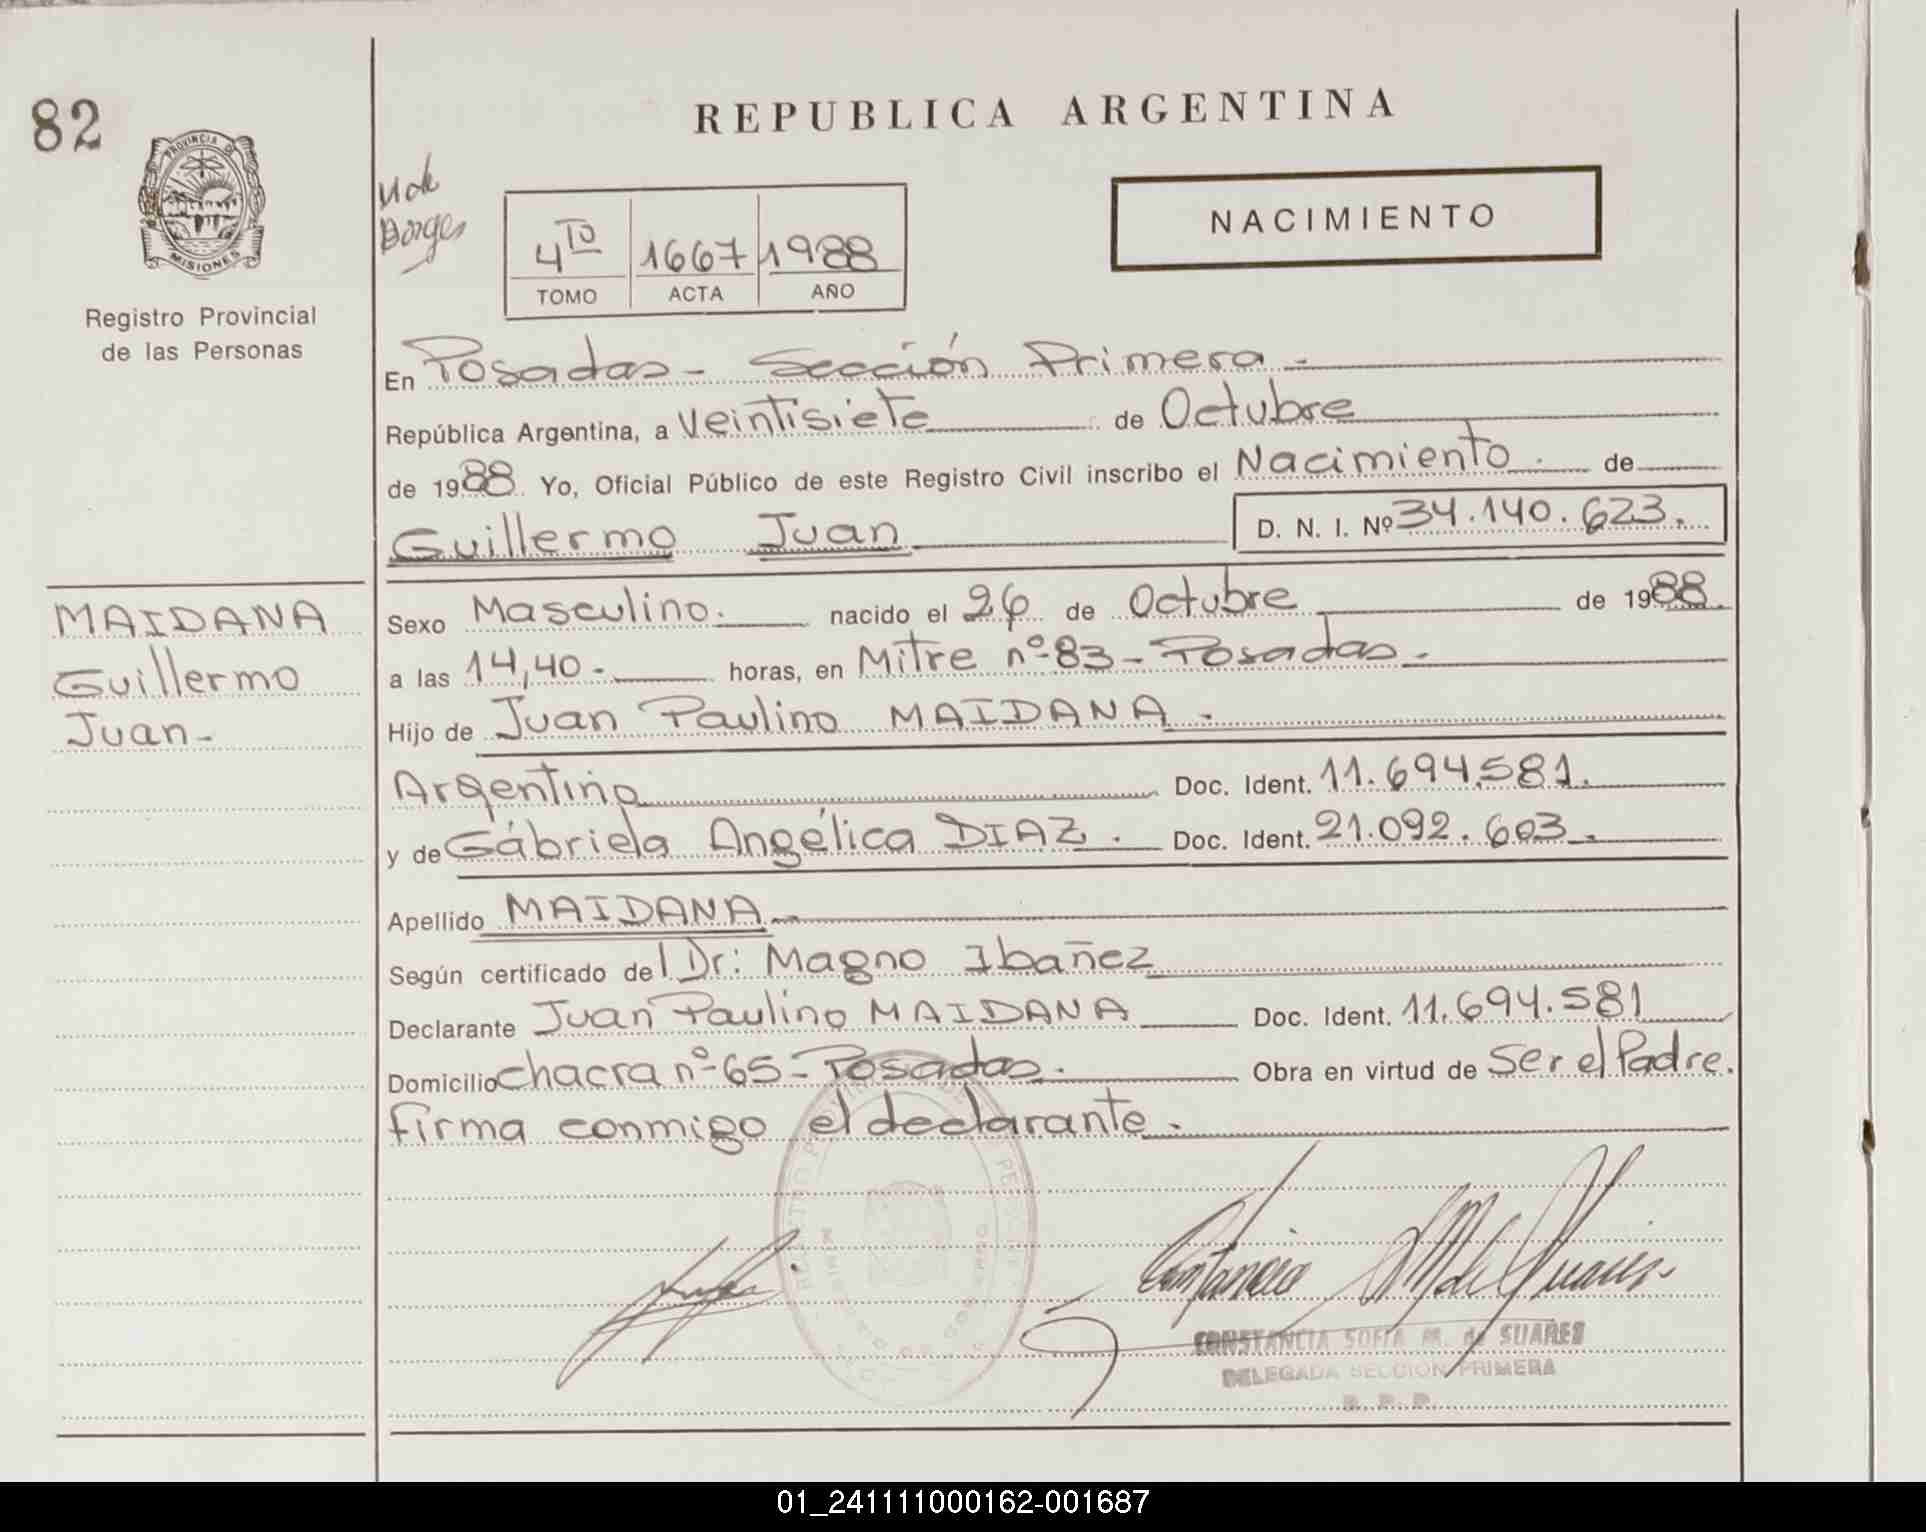 82
REPUBLICA ARGENTINA
PROVINCIA DE
MISIONES
Registro Provincial
de las Personas
NACIMIENTO
4TO 1667 1988
TOMO ACTA AÑO
En Posadas - Sección Primera -
República Argentina, a Veintisiete de Octubre
de 1988 Yo, Oficial Público de este Registro Civil inscribo el Nacimiento. de
Guillermo Juan D. N. I. Nº 34.140.623.
MAIDANA
Guillermo
Juan-
Sexo Masculino. nacido el 26 de Octubre de 1988.
a las 14,40- horas, en Mitre nº 83 - Posadas.
Hijo de Juan Paulino MAIDANA -
Argentino Doc. Ident. 11.694.581.
y de Gábriela Angélica DIAZ. Doc. Ident. 21.092.603.
Apellido MAIDANA-
Según certificado del Dr: Magno Ibañez
Declarante Juan Paulino MAIDANA Doc. Ident. 11.694.581
Domicilio chacra nº 65 - Posadas. Obra en virtud de Ser el Padre.
firma conmigo el declarante.
Constancia M de Suares
CONSTANCIA SOFIA M. de SUARES
DELEGADA SECCION PRIMERA
R. P. P.
01_241111000162-001687